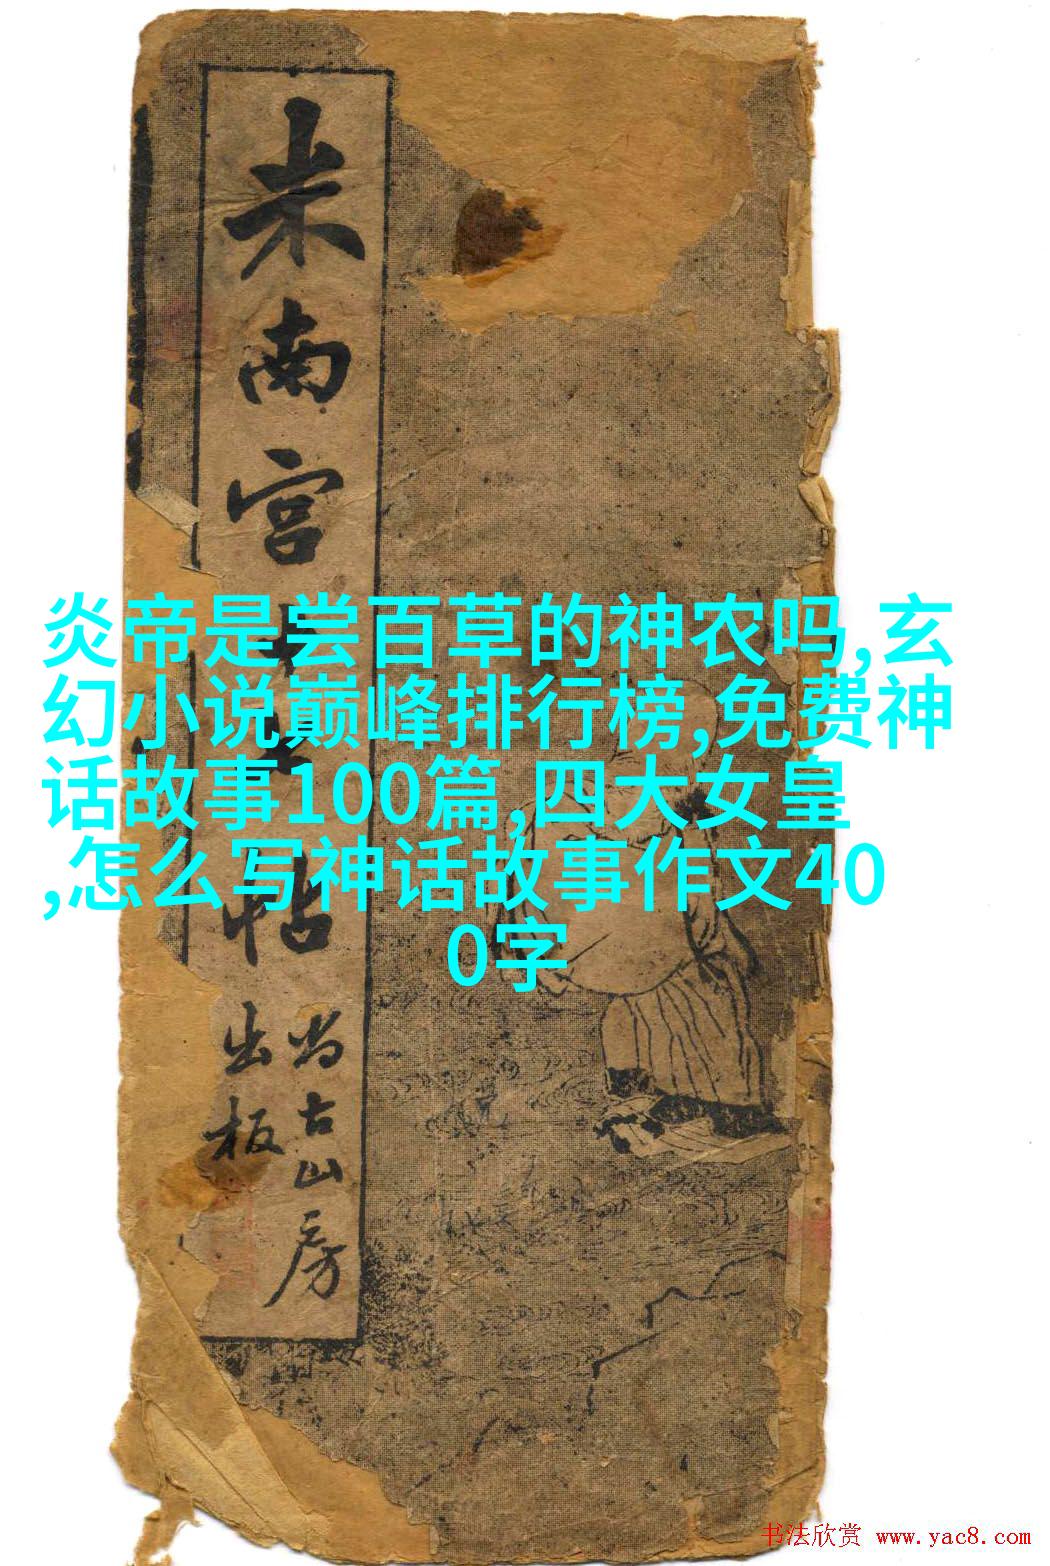 米南宫十七帖
尚古山房
出板
炎帝是尝百草的神农吗,玄
幻小说巅峰排行榜,免费神
话故事100篇,四大女皇
,怎么写神话故事作文40
0字
书法欣赏 www.yac8.com